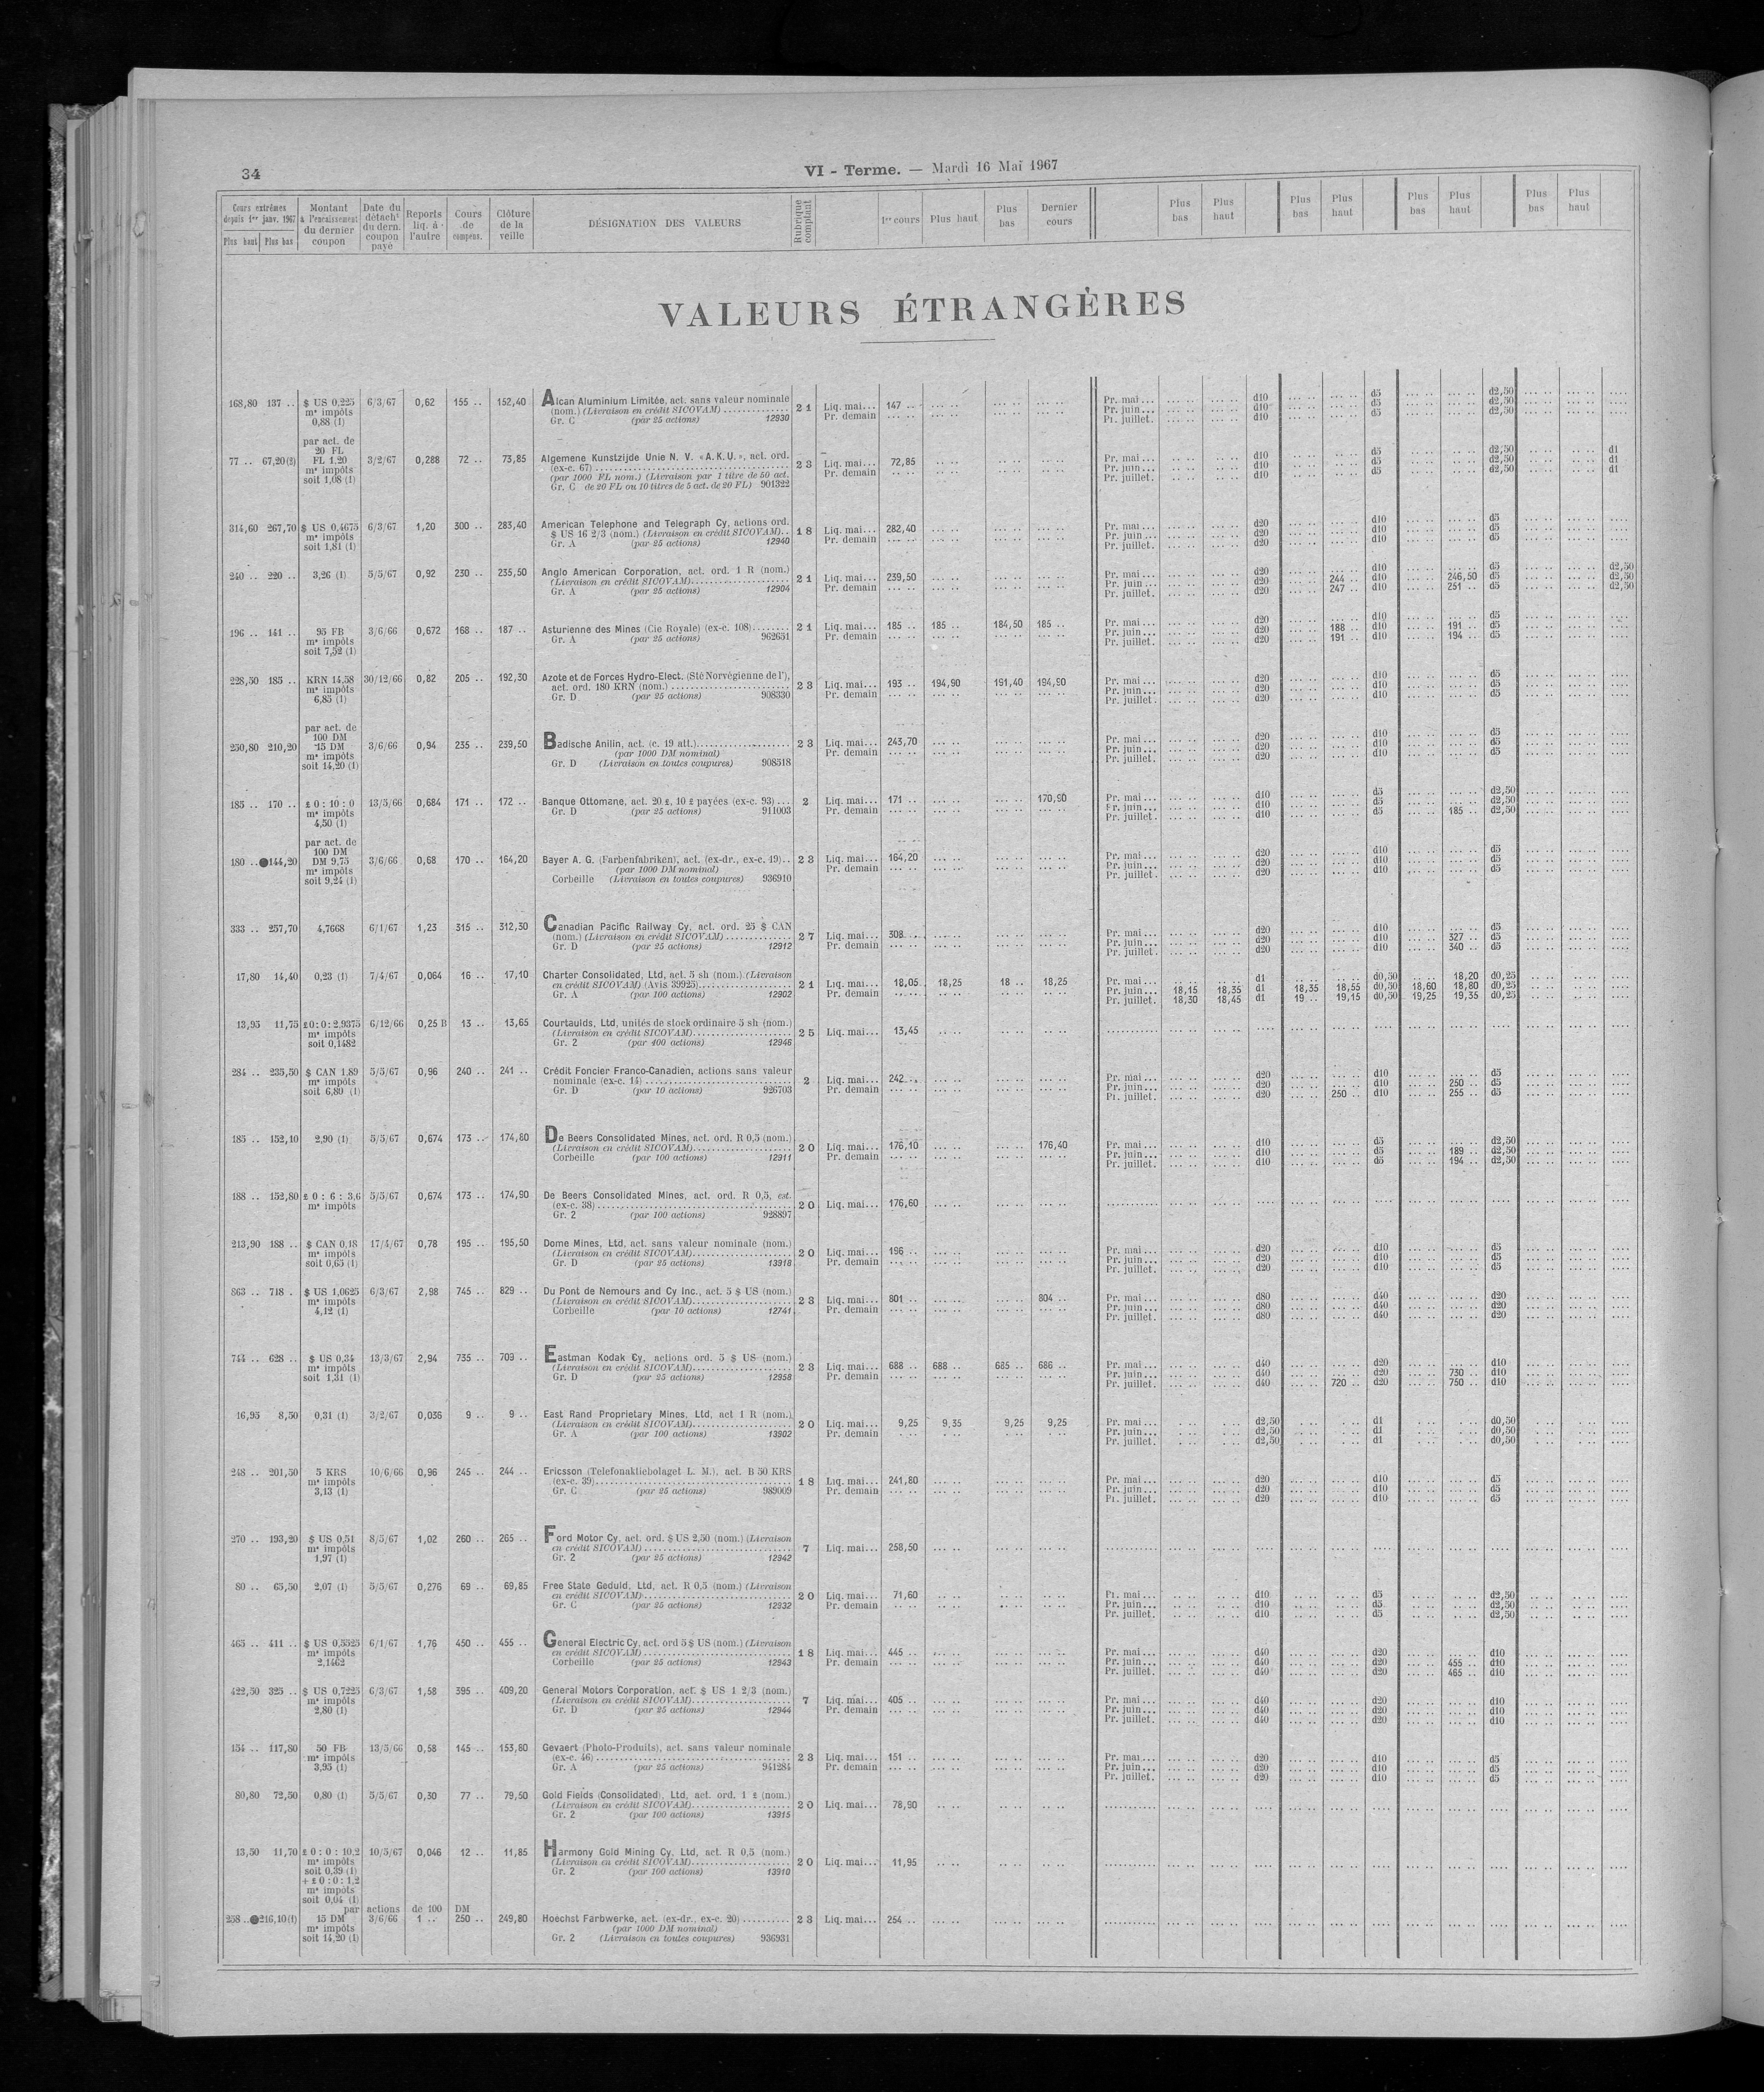 34
VI - Terme. — Mardi 16 Mai 1967
Cours extrêmes depuis 1er janv. 1967 Plus haut Plus bas | Montant à l'encaissement du dernier coupon | Date du détacht du dern. coupon payé | Reports liq. à l'autre | Cours de compens. | Clôture de la veille | DÉSIGNATION DES VALEURS | Rubrique comptant | 1er cours | Plus haut | Plus bas | Dernier cours | Plus bas | Plus haut | Plus bas | Plus haut | Plus bas | Plus haut | Plus bas | Plus haut
VALEURS ÉTRANGÈRES
168,80 137 .. $ US 0,225 6/3/67 0,62 155 .. 152,40 Alcan Aluminium Limitée, act. sans valeur nominale 21 Liq. mai... 147 .. Pr. mai... d10 d5 d2,50
m⁸ impôts (nom.) (Livraison en crédit SICOVAM) Pr. demain Pr. juin... d10 d5 d2,50
0,88 (1) Gr. C (par 25 actions) 12930 Pr. juillet. d10 d5 d2,50
par act. de
20 FL
77 .. 67,20(2) FL 1,20 3/2/67 0,288 72 .. 73,85 Algemene Kunstzijde Unie N. V. «A.K.U.», act. ord. 23 Liq. mai... 72,85 Pr. mai... d10 d5 d2,50 d1
m⁸ impôts (ex-c. 67) Pr. demain Pr. juin... d10 d5 d2,50 d1
soit 1,08 (1) (par 1000 FL nom.) (Livraison par 1 titre de 50 act. Pr. juillet. d10 d5 d2,50 d1
Gr. C de 20 FL ou 10 titres de 5 act. de 20 FL) 901322
314,60 267,70 $ US 0,4675 6/3/67 1,20 300 .. 283,40 American Telephone and Telegraph Cy, actions ord. 18 Liq. mai... 282,40 Pr. mai... d20 d10 d5
m⁸ impôts $ US 16 2/3 (nom.) (Livraison en crédit SICOVAM).. Pr. demain Pr. juin... d20 d10 d5
soit 1,81 (1) Gr. A (par 25 actions) 12940 Pr. juillet. d20 d10 d5
240 .. 220 .. 3,26 (1) 5/5/67 0,92 230 .. 235,50 Anglo American Corporation, act. ord. 1 R (nom.) 21 Liq. mai... 239,50 Pr. mai... d20 d10 d5 d2,50
(Livraison en crédit SICOVAM) Pr. demain Pr. juin... d20 244 .. d10 246,50 d5 d2,50
Gr. A (par 25 actions) 12904 Pr. juillet. d20 247 .. d10 251 .. d5 d2,50
196 .. 141 .. 95 FB 3/6/66 0,672 168 .. 187 .. Asturienne des Mines (Cie Royale) (ex-c. 108) 21 Liq. mai... 185 .. 185 .. 184,50 185 .. Pr. mai... d20 d10 d5
m⁸ impôts Gr. A (par 25 actions) 962651 Pr. demain Pr. juin... d20 188 .. d10 191 .. d5
soit 7,52 (1) Pr. juillet. d20 191 .. d10 194 .. d5
228,50 185 .. KRN 14,58 30/12/66 0,82 205 .. 192,30 Azote et de Forces Hydro-Elect. (Sté Norvégienne de l'), 23 Liq. mai... 193 .. 194,90 191,40 194,90 Pr. mai... d20 d10 d5
m⁸ impôts act. ord. 180 KRN (nom.) Pr. demain Pr. juin... d20 d10 d5
6,85 (1) Gr. D (par 25 actions) 908330 Pr. juillet. d20 d10 d5
par act. de
100 DM
250,80 210,20 15 DM 3/6/66 0,94 235 .. 239,50 Badische Anilin, act. (c. 19 att.) 23 Liq. mai... 243,70 Pr. mai... d20 d10 d5
m⁸ impôts (par 1000 DM nominal) Pr. demain Pr. juin... d20 d10 d5
soit 14,20 (1) Gr. D (Livraison en toutes coupures) 908518 Pr. juillet. d20 d10 d5
185 .. 170 .. £ 0 : 10 : 0 13/5/66 0,684 171 .. 172 .. Banque Ottomane, act. 20 £, 10 £ payées (ex-c. 93) ... 2 Liq. mai... 171 .. 170,90 Pr. mai... d10 d5 d2,50
m⁸ impôts Gr. D (par 25 actions) 911003 Pr. demain Pr. juin... d10 d5 d2,50
4,50 (1) Pr. juillet. d10 d5 185 .. d2,50
par act. de
100 DM
180 .. ●144,20 DM 9,75 3/6/66 0,68 170 .. 164,20 Bayer A. G. (Farbenfabriken), act. (ex-dr., ex-c. 19).. 23 Liq. mai... 164,20 Pr. mai... d20 d10 d5
m⁸ impôts (par 1000 DM nominal) Pr. demain Pr. juin... d20 d10 d5
soit 9,24 (1) Corbeille (Livraison en toutes coupures) 936910 Pr. juillet. d20 d10 d5
333 .. 257,70 4,7668 6/1/67 1,23 315 .. 312,30 Canadian Pacific Railway Cy, act. ord. 25 $ CAN 27 Liq. mai... 308 .. Pr. mai... d20 d10 d5
(nom.) (Livraison en crédit SICOVAM) Pr. demain Pr. juin... d20 d10 327 .. d5
Gr. D (par 25 actions) 12912 Pr. juillet. d20 d10 340 .. d5
17,80 14,40 0,23 (1) 7/4/67 0,064 16 .. 17,10 Charter Consolidated, Ltd, act. 5 sh (nom.) (Livraison 21 Liq. mai... 18,05 18,25 18 .. 18,25 Pr. mai... d1 d0,50 18,20 d0,25
en crédit SICOVAM) (Avis 39925) Pr. demain Pr. juin... 18,15 18,35 d1 18,35 18,55 d0,50 18,60 18,80 d0,25
Gr. A (par 100 actions) 12902 Pr. juillet. 18,30 18,45 d1 19 .. 19,15 d0,50 19,25 19,35 d0,25
13,95 11,75 £0:0:2,9375 6/12/66 0,25 B 13 .. 13,65 Courtaulds, Ltd, unités de stock ordinaire 5 sh (nom.) 25 Liq. mai... 13,45
m⁸ impôts (Livraison en crédit SICOVAM)
soit 0,1482 Gr. 2 (par 100 actions) 12946
284 .. 235,50 $ CAN 1,89 5/5/67 0,96 240 .. 241 .. Crédit Foncier Franco-Canadien, actions sans valeur 2 Liq. mai... 242 .. Pr. mai... d20 d10 d5
m⁸ impôts nominale (ex-c. 14) Pr. demain Pr. juin... d20 d10 250 .. d5
soit 6,80 (1) Gr. D (par 10 actions) 926703 Pr. juillet. d20 250 .. d10 255 .. d5
185 .. 152,10 2,90 (1) 5/5/67 0,674 173 .. 174,80 De Beers Consolidated Mines, act. ord. R 0,5 (nom.) 20 Liq. mai... 176,10 176,40 Pr. mai... d10 d5 d2,50
(Livraison en crédit SICOVAM) Pr. demain Pr. juin... d10 d5 189 .. d2,50
Corbeille (par 100 actions) 12911 Pr. juillet. d10 d5 194 .. d2,50
188 .. 152,80 £ 0 : 6 : 3,6 5/5/67 0,674 173 .. 174,90 De Beers Consolidated Mines, act. ord. R 0,5, est. 20 Liq. mai... 176,60
m⁸ impôts (ex-c. 38)
Gr. 2 (par 100 actions) 928897
213,90 188 .. $ CAN 0,18 17/4/67 0,78 195 .. 195,50 Dome Mines, Ltd, act. sans valeur nominale (nom.) 20 Liq. mai... 196 .. Pr. mai... d20 d10 d5
m⁸ impôts (Livraison en crédit SICOVAM) Pr. demain Pr. juin... d20 d10 d5
soit 0,65 (1) Gr. D (par 25 actions) 13918 Pr. juillet. d20 d10 d5
863 .. 718 . $ US 1,0625 6/3/67 2,98 745 .. 829 .. Du Pont de Nemours and Cy Inc., act. 5 $ US (nom.) 23 Liq. mai... 801 .. 804 .. Pr. mai... d80 d40 d20
m⁸ impôts (Livraison en crédit SICOVAM) Pr. demain Pr. juin... d80 d40 d20
4,12 (1) Corbeille (par 10 actions) 12741 Pr. juillet. d80 d40 d20
744 .. 628 .. $ US 0,34 13/3/67 2,94 735 .. 709 .. Eastman Kodak Cy, actions ord. 5 $ US (nom.) 23 Liq. mai... 688 .. 688 .. 685 .. 686 .. Pr. mai... d40 d20 d10
m⁸ impôts (Livraison en crédit SICOVAM) Pr. demain Pr. juin... d40 d20 730 .. d10
soit 1,31 (1) Gr. D (par 25 actions) 12958 Pr. juillet. d40 720 .. d20 750 .. d10
16,95 8,50 0,31 (1) 3/2/67 0,036 9 .. 9 .. East Rand Proprietary Mines, Ltd, act 1 R (nom.) 20 Liq. mai... 9,25 9,35 9,25 9,25 Pr. mai... d2,50 d1 d0,50
(Livraison en crédit SICOVAM) Pr. demain Pr. juin... d2,50 d1 d0,50
Gr. A (par 100 actions) 13902 Pr. juillet. d2,50 d1 d0,50
248 .. 201,50 5 KRS 10/6/66 0,96 245 .. 244 .. Ericsson (Telefonaktiebolaget L. M.), act. B 50 KRS 18 Liq. mai... 241,80 Pr. mai... d20 d10 d5
m⁸ impôts (ex-c. 39) Pr. demain Pr. juin... d20 d10 d5
3,13 (1) Gr. C (par 25 actions) 989009 Pr. juillet. d20 d10 d5
270 .. 193,20 $ US 0,51 8/5/67 1,02 260 .. 265 .. Ford Motor Cy, act. ord. $ US 2,50 (nom.) (Livraison 7 Liq. mai... 258,50
m⁸ impôts en crédit SICOVAM)
1,97 (1) Gr. 2 (par 25 actions) 12942
80 .. 65,50 2,07 (1) 5/5/67 0,276 69 .. 69,85 Free State Geduld, Ltd, act. R 0,5 (nom.) (Livraison 20 Liq. mai... 71,60 Pr. mai... d10 d5 d2,50
en crédit SICOVAM) Pr. demain Pr. juin... d10 d5 d2,50
Gr. C (par 25 actions) 12932 Pr. juillet. d10 d5 d2,50
465 .. 411 .. $ US 0,5525 6/1/67 1,76 450 .. 455 .. General Electric Cy, act. ord 5 $ US (nom.) (Livraison 18 Liq. mai... 445 .. Pr. mai... d40 d20 d10
m⁸ impôts en crédit SICOVAM) Pr. demain Pr. juin... d40 d20 455 .. d10
2,1462 Corbeille (par 25 actions) 12943 Pr. juillet. d40 d20 465 .. d10
422,50 325 .. $ US 0,7225 6/3/67 1,58 395 .. 409,20 General Motors Corporation, act. $ US 1 2/3 (nom.) 7 Liq. mai... 405 .. Pr. mai... d40 d20 d10
m⁸ impôts (Livraison en crédit SICOVAM) Pr. demain Pr. juin... d40 d20 d10
2,80 (1) Gr. D (par 25 actions) 12944 Pr. juillet. d40 d20 d10
154 .. 117,80 50 FB 13/5/66 0,58 145 .. 153,80 Gevaert (Photo-Produits), act. sans valeur nominale 23 Liq. mai... 151 .. Pr. mai... d20 d10 d5
m⁸ impôts (ex-c. 46) Pr. demain Pr. juin... d20 d10 d5
3,95 (1) Gr. A (par 25 actions) 941284 Pr. juillet. d20 d10 d5
80,80 72,50 0,80 (1) 5/5/67 0,30 77 .. 79,50 Gold Fields (Consolidated), Ltd, act. ord. 1 £ (nom.) 20 Liq. mai... 78,90
(Livraison en crédit SICOVAM)
Gr. 2 (par 100 actions) 13915
13,50 11,70 £ 0 : 0 : 10,2 10/5/67 0,046 12 .. 11,85 Harmony Gold Mining Cy, Ltd, act. R 0,5 (nom.) 20 Liq. mai... 11,95
m⁸ impôts (Livraison en crédit SICOVAM)
soit 0,39 (1) Gr. 2 (par 100 actions) 13910
+ £ 0 : 0 : 1,2
m⁸ impôts
soit 0,04 (1)
par actions de 100 DM
258 .. ●216,10(1) 15 DM 3/6/66 1 .. 250 .. 249,80 Hoechst Farbwerke, act. (ex-dr., ex-c. 20) 23 Liq. mai... 254 ..
m⁸ impôts (par 1000 DM nominal)
soit 14,20 (1) Gr. 2 (Livraison en toutes coupures) 936931